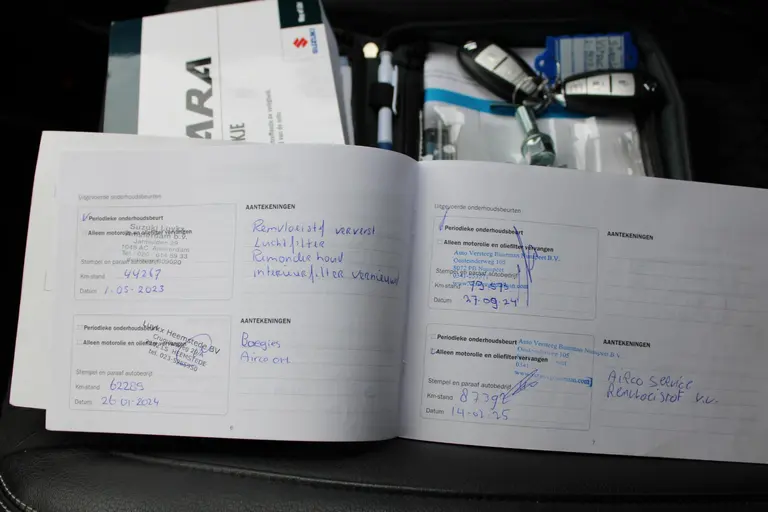 ARA
KJE
SUZUKI
Uitgevoerde onderhoudsbeurten
Periodieke onderhoudsbeurt
Alleen motorolie en oliefilter vervangen
Suzuki Luxkx
Amsterdam B.V.
Stempel en paraaf autobedrijf
Km-stand: 44267
Datum: 1-05-2023
AANTEKENINGEN
Remvloeistof ververst
Luchtfilter
Remonderhoud
interieurfilter vernieuwd
Periodieke onderhoudsbeurt
Alleen motorolie en oliefilter vervangen
Luxkx Heemstede BV
Stempel en paraaf autobedrijf
Km-stand: 62285
Datum: 26-01-2024
AANTEKENINGEN
Boegies
Airco on
Uitgevoerde onderhoudsbeurten
Periodieke onderhoudsbeurt
Alleen motorolie en oliefilter vervangen
Auto Versteeg Buurman Nunspeet B.V.
Oosteinderweg 105
8072 PB Nunspeet
Stempel en paraaf autobedrijf
Km-stand: 79.573
Datum: 27-09-24
AANTEKENINGEN
Periodieke onderhoudsbeurt
Alleen motorolie en oliefilter vervangen
Auto Versteeg Buurman Nunspeet B.V.
Oosteinderweg 105
Stempel en paraaf autobedrijf
Km-stand: 87392
Datum: 14-07-25
AANTEKENINGEN
Airco service
Remvloeistof v.v.